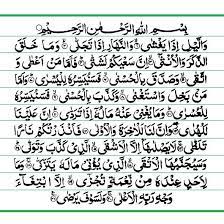 بِسْمِ اللهِ الرَّحْمٰنِ الرَّحِيْمِ
وَالَّيْلِ اِذَا يَغْشٰى ۝ وَالنَّهَارِ اِذَا تَجَلّٰى ۝ وَمَا خَلَقَ
الذَّكَرَ وَالْاُنْثٰى ۝ اِنَّ سَعْيَكُمْ لَشَتّٰى ۝ فَاَمَّا مَنْ اَعْطٰى وَ
اتَّقٰى ۝ وَصَدَّقَ بِالْحُسْنٰى ۝ فَسَنُيَسِّرُهٗ لِلْيُسْرٰى ۝ وَاَمَّا
مَنْ بَخِلَ وَاسْتَغْنٰى ۝ وَكَذَّبَ بِالْحُسْنٰى ۝ فَسَنُيَسِّرُهٗ
لِلْعُسْرٰى ۝ وَمَا يُغْنِيْ عَنْهُ مَالُهٗ اِذَا تَرَدّٰى ۝ اِنَّ عَلَيْنَا
لَلْهُدٰى ۝ وَاِنَّ لَنَا لَلْاٰخِرَةَ وَالْاُوْلٰى ۝ فَاَنْذَرْتُكُمْ نَارًا
تَلَظّٰى ۝ لَا يَصْلٰىهَا اِلَّا الْاَشْقَى ۝ الَّذِيْ كَذَّبَ وَتَوَلّٰى ۝
وَسَيُجَنَّبُهَا الْاَتْقَى ۝ الَّذِيْ يُؤْتِيْ مَالَهٗ يَتَزَكّٰى ۝ وَمَا
لِاَحَدٍ عِنْدَهٗ مِنْ نِّعْمَةٍ تُجْزٰى ۝ اِلَّا ابْتِغَآءَ
وَجْهِ رَبِّهِ الْاَعْلٰى ۝ وَلَسَوْفَ يَرْضٰى ۝